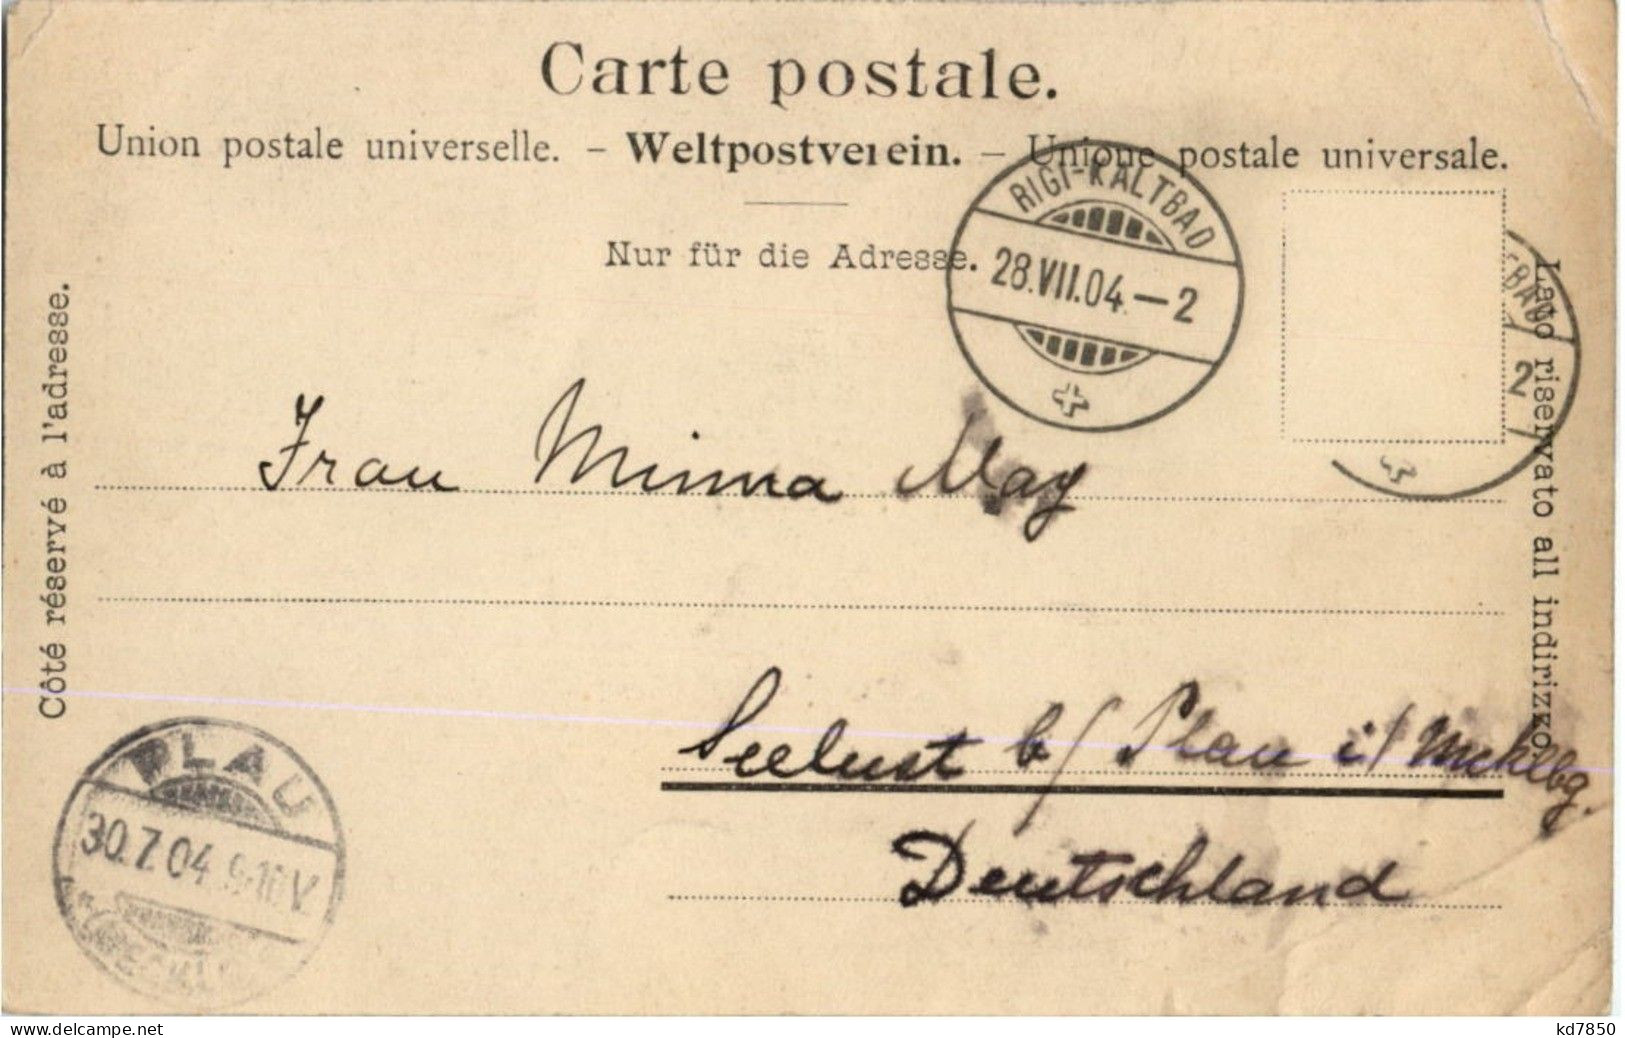 Carte postale.
Union postale universelle. – Weltpostverein. – Unione postale universale.
Nur für die Adresse.
RIGI-KALTBAD
28.VII.04.–2
BAD
2
Côté réservé à l'adresse.
Lato riservato all indirizzo
Frau Minna May
Seelust b/ Plau i/ Mcklbg.
Deutschland
PLAU
30.7.04 9-10V.
delcampe.net
kd7850